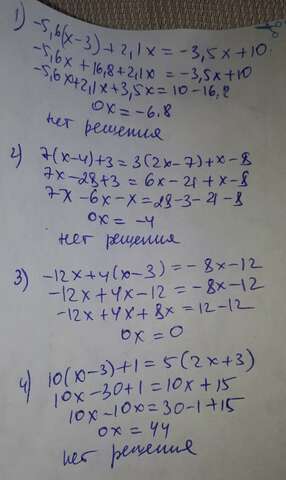 1) -5,6(x-3)+2,1x=-3,5x+10
-5,6x+16,8+2,1x=-3,5x+10
-5,6x+2,1x+3,5x=10-16,8
0x=-6.8
нет решения
2) 7(x-4)+3=3(2x-7)+x-8
7x-28+3=6x-21+x-8
7x-6x-x=28-3-21-8
0x=-4
нет решения
3) -12x+4(x-3)=-8x-12
-12x+4x-12=-8x-12
-12x+4x+8x=12-12
0x=0
4) 10(x-3)+1=5(2x+3)
10x-30+1=10x+15
10x-10x=30-1+15
0x=44
нет решения